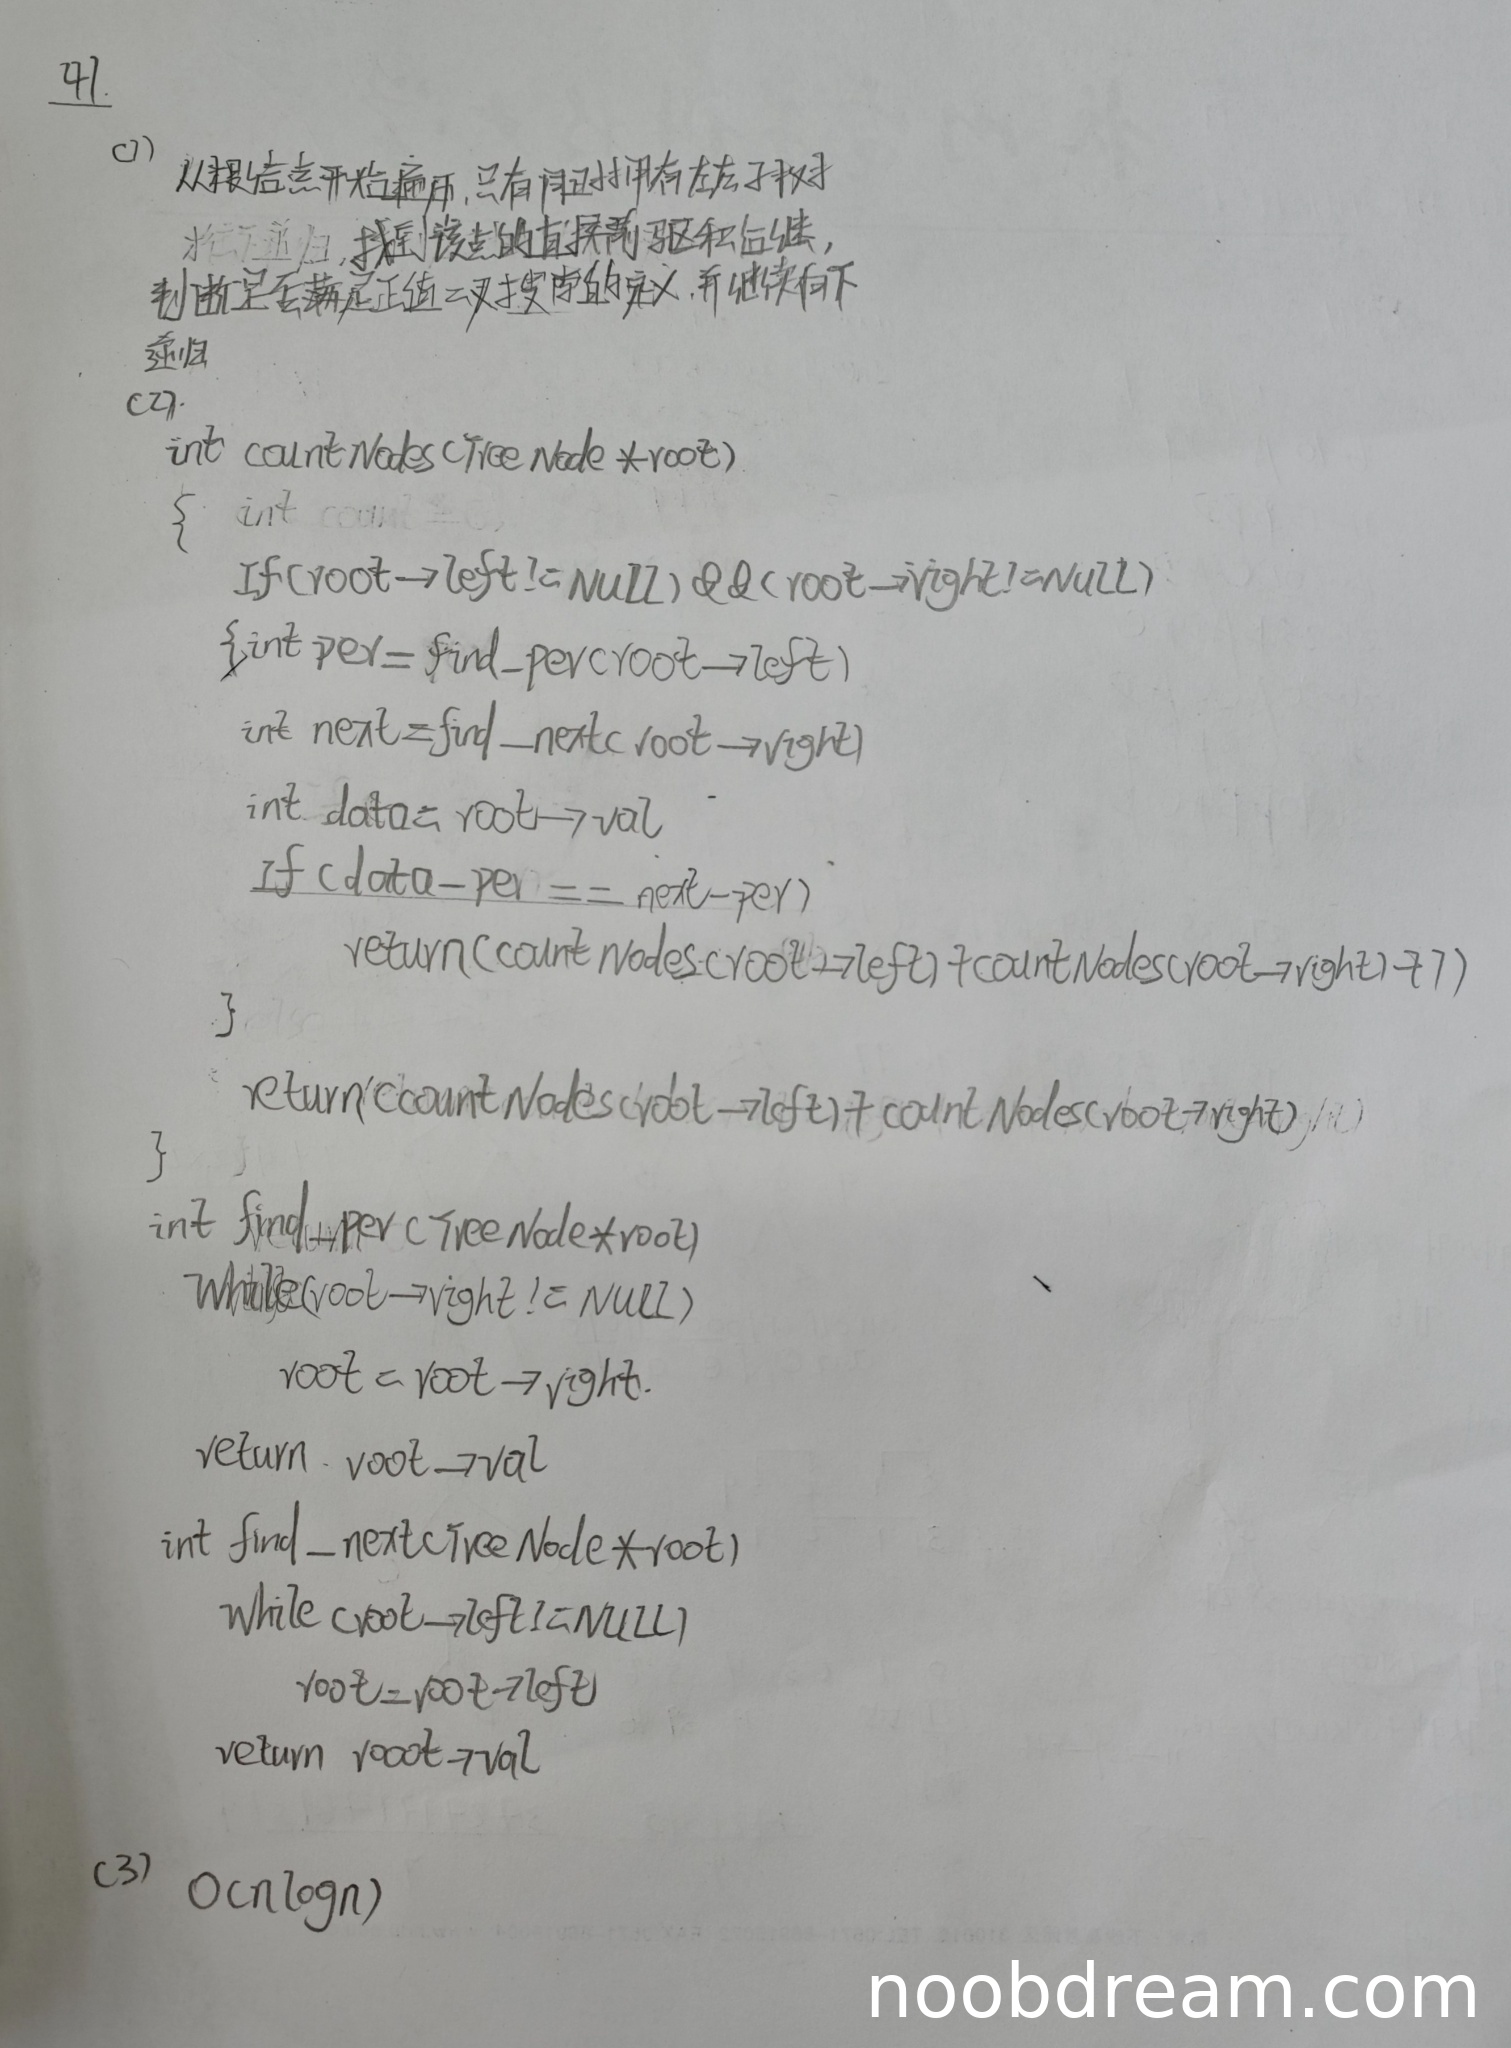 41.
(1) 从根结点开始遍历,只有同时拥有左右子树时
找到该点的直接前驱和后继,
判断是否满足正值二叉搜索的定义,并继续向下
递归
(2).
int countNodes(TreeNode *root)
{ int count = 0;
If(root→left!=NULL)&&(root→right!=NULL)
{int per=find_per(root→left)
int next=find_next(root→right)
int data=root→val
If(data-per==next-per)
return(countNodes(root→left)+countNodes(root→right)+1)
}
return(countNodes(root→left)+countNodes(root→right)
}
int find_per(TreeNode*root)
While(root→right!=NULL)
root=root→right.
return root→val
int find_next(TreeNode*root)
While(root→left!=NULL)
root=root→left
return rooot→val
(3) O(nlogn)
noobdream.com